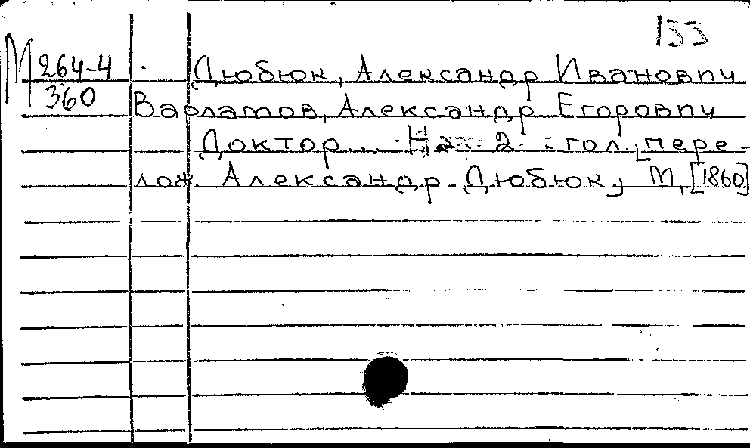 155
М 264-4 Дюбюк, Александр Иванович
360 Варламов, Александр Егорович
Доктор... На 2 гол. [пере-
лож. Александр Дюбюк, М, [1860]